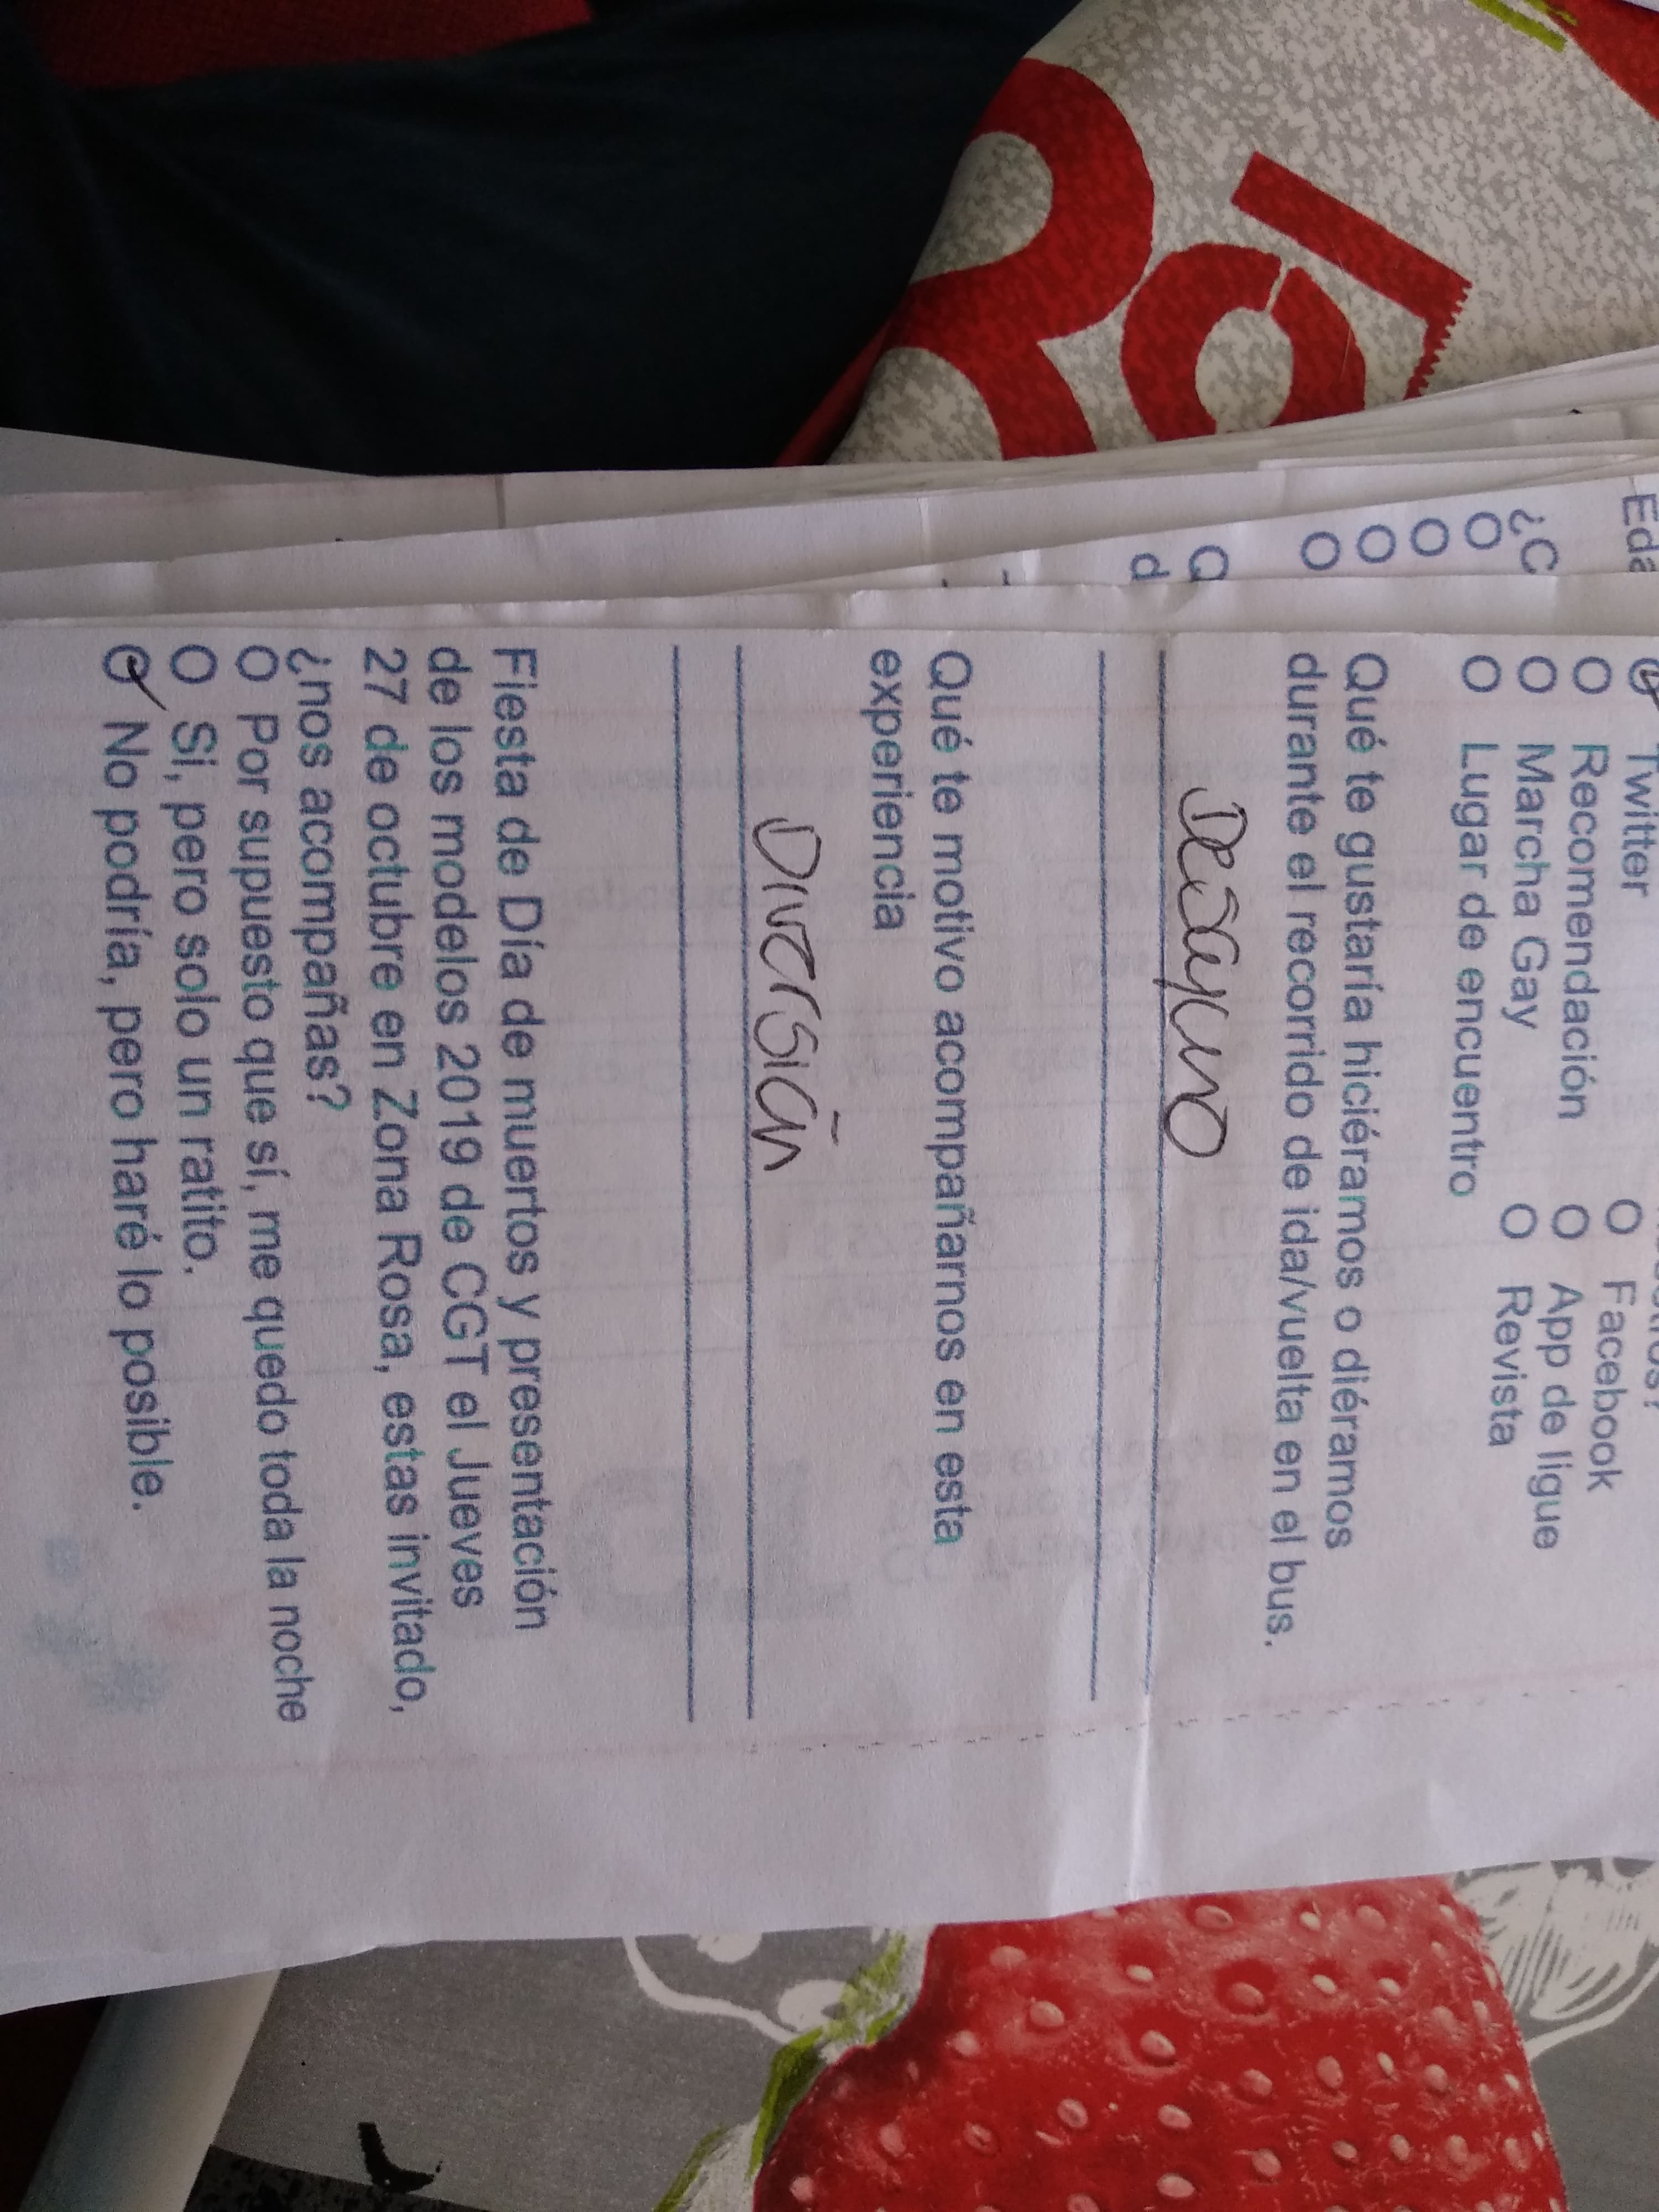 Twitter
O Recomendación
O Facebook
O Marcha Gay
O App de ligue
O Lugar de encuentro
O Revista
Qué te gustaría hiciéramos o diéramos
durante el recorrido de ida/vuelta en el bus.
Desayuno
Qué te motivo acompañarnos en esta
experiencia
Diversión
Fiesta de Día de muertos y presentación
de los modelos 2019 de CGT el Jueves
27 de octubre en Zona Rosa, estas invitado,
¿nos acompañas?
O Por supuesto que sí, me quedo toda la noche
O Si, pero solo un ratito.
O No podría, pero haré lo posible.